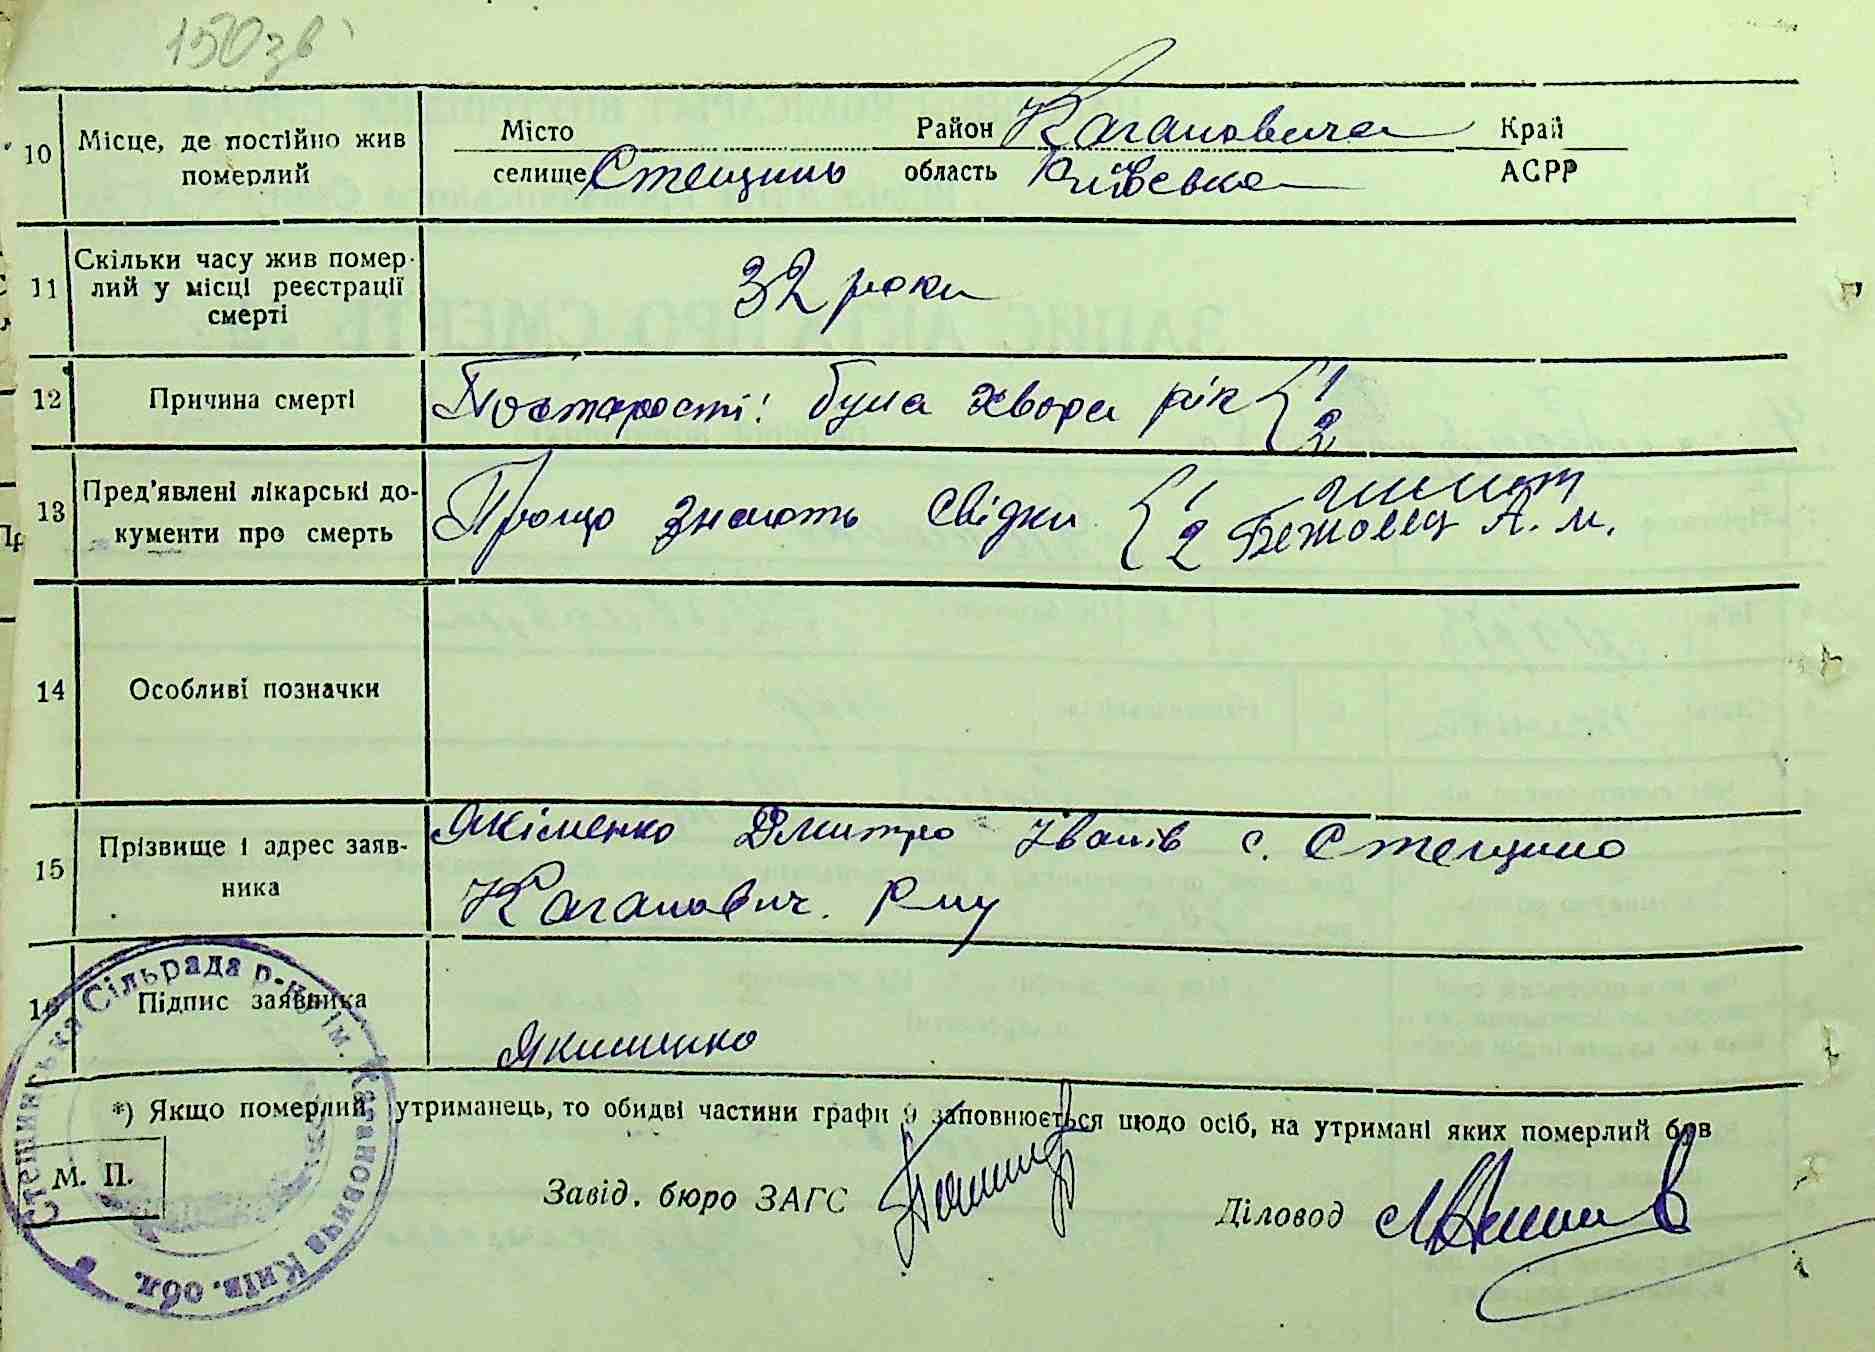 150зв
10 Місце, де постійно жив померлий
Місто Район Кагановича Край
селище Стещино область Київська АСРР
11 Скільки часу жив помер-
лий у місці реєстрації
смерті
32 роки
12 Причина смерті По старості: була хвора рік { 1
2
13 Пред'явлені лікарські до-
кументи про смерть
Прощо знають свідки { 1
2 Бежовец А. М.
14 Особливі позначки
15 Прізвище і адрес заяв-
ника
Якіменко Дмитро Іванів с. Стещино
Каганович. р-ну
16 Підпис заявника
Якименко
*) Якщо померлий утриманець, то обидві частини графи 9 заповнюється щодо осіб, на утримані яких померлий був
М. П.
Завід. бюро ЗАГС
Діловод
Стещинська Сільрада р-ну ім. Кагановича Київ. обл.